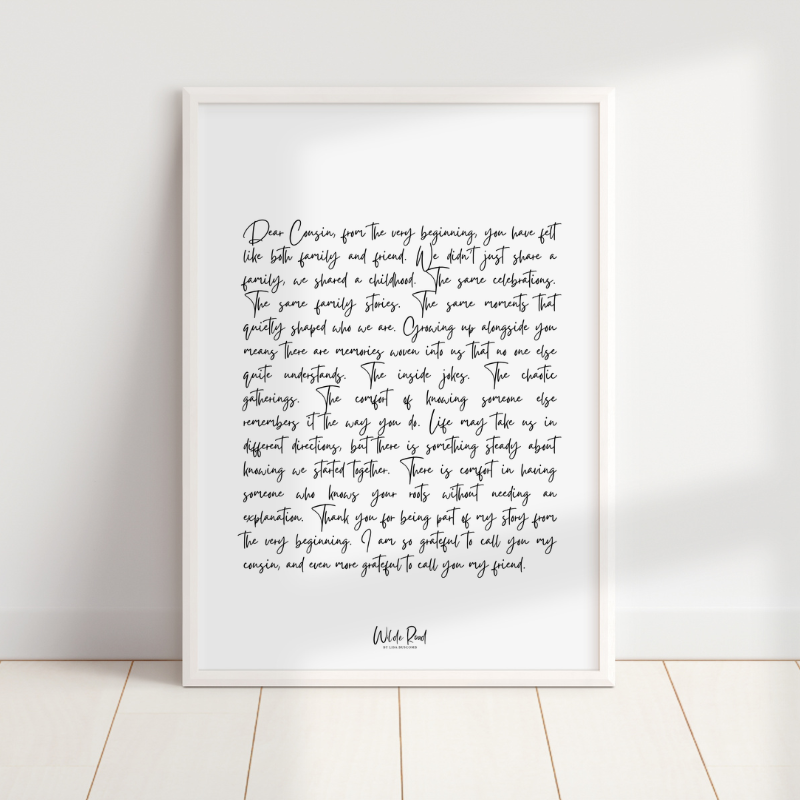 Dear Cousin, from the very beginning, you have felt
like both family and friend. We didn't just share a
family, we shared a childhood. The same celebrations.
The same family stories. The same moments that
quietly shaped who we are. Growing up alongside you
means there are memories woven into us that no one else
quite understands. The inside jokes. The chaotic
gatherings. The comfort of knowing someone else
remembers it the way you do. Life may take us in
different directions, but there is something steady about
knowing we started together. There is comfort in having
someone who knows your roots without needing an
explanation. Thank you for being part of my story from
the very beginning. I am so grateful to call you my
cousin, and even more grateful to call you my friend.
Wilde Road
BY LISA